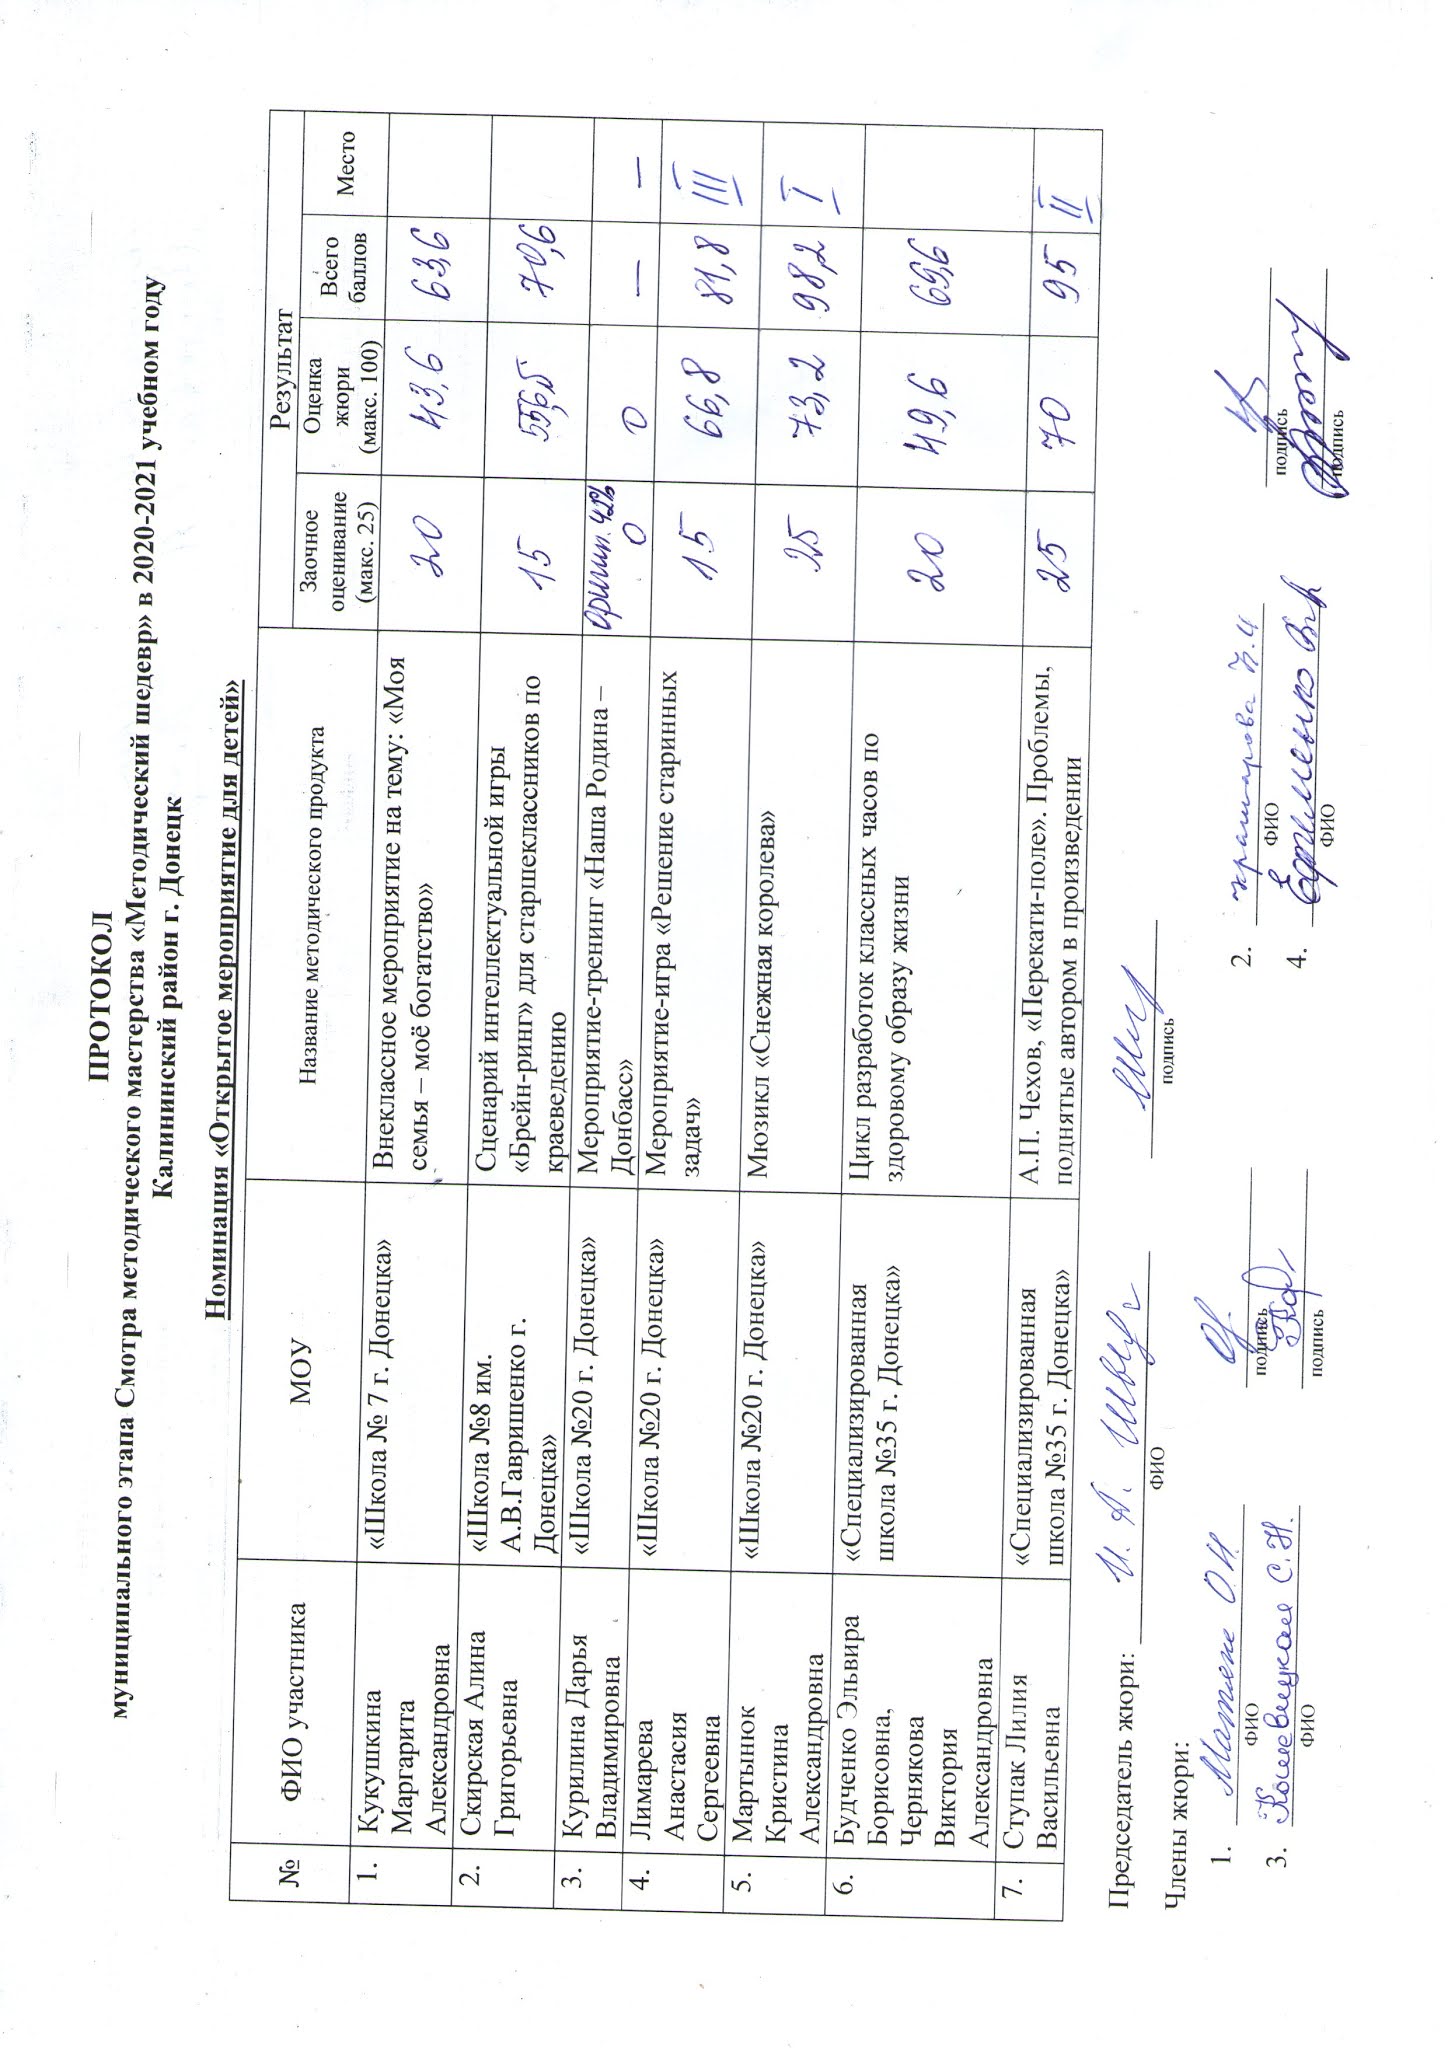 ПРОТОКОЛ
муниципального этапа Смотра методического мастерства «Методический шедевр» в 2020-2021 учебном году
Калининский район г. Донецк
Номинация «Открытое мероприятие для детей»
№ ФИО участника МОУ Название методического продукта Результат
Заочное оценивание (макс. 25) Оценка жюри (макс. 100) Всего баллов Место
1. Кукушкина «Школа № 7 г. Донецка» Внеклассное мероприятие на тему: «Моя 20 43,6 63,6
Маргарита семья – моё богатство»
Александровна
2. Скирская Алина «Школа №8 им. Сценарий интеллектуальной игры 15 70,6
Григорьевна А.В.Гавришенко г. «Брейн-ринг» для старшеклассников по
Донецка» краеведению
3. Курилина Дарья «Школа №20 г. Донецка» Мероприятие-тренинг «Наша Родина – оригин. 42% 0 0 — —
Владимировна Донбасс»
4. Лимарева «Школа №20 г. Донецка» Мероприятие-игра «Решение старинных 15 66,8 81,8 III
Анастасия задач»
Сергеевна
5. Мартынюк «Школа №20 г. Донецка» Мюзикл «Снежная королева» 25 73,2 98,2 I
Кристина
Александровна
6. Будченко Эльвира «Специализированная Цикл разработок классных часов по 20 49,6 69,6
Борисовна, школа №35 г. Донецка» здоровому образу жизни
Чернякова
Виктория
Александровна
7. Ступак Лилия «Специализированная А.П. Чехов, «Перекати-поле». Проблемы, 25 70 95 II
Васильевна школа №35 г. Донецка» поднятые автором в произведении
Председатель жюри: И. А.
ФИО подпись
Члены жюри:
1. О.Н. 2.
ФИО подпись ФИО подпись
3. С.Н. 4.
ФИО подпись ФИО подпись